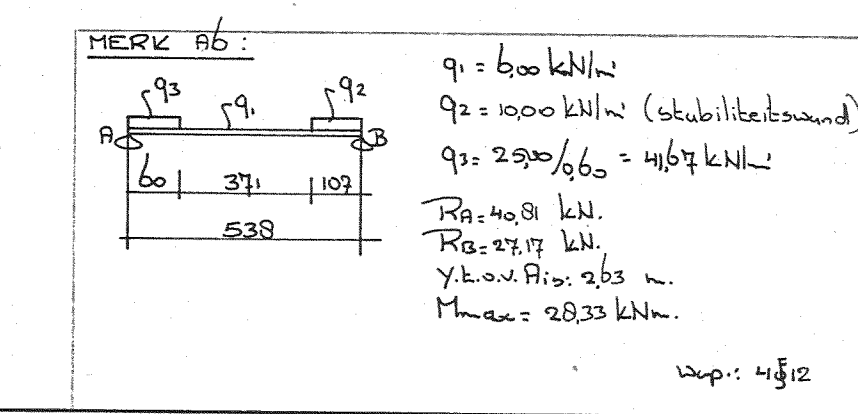 MERK A6 :
q3 q1 q2
A B
60 371 107
538
q1 = 6,00 kN/m'
q2 = 10,00 kN/m' (stabiliteitswand)
q3 = 25,00/0,60 = 41,67 kN/m'
RA = 40,81 kN.
RB = 27,17 kN.
Y.t.o.v. A is: 2,63 m.
Mmax = 28,33 kNm.
Wap.: 4 12